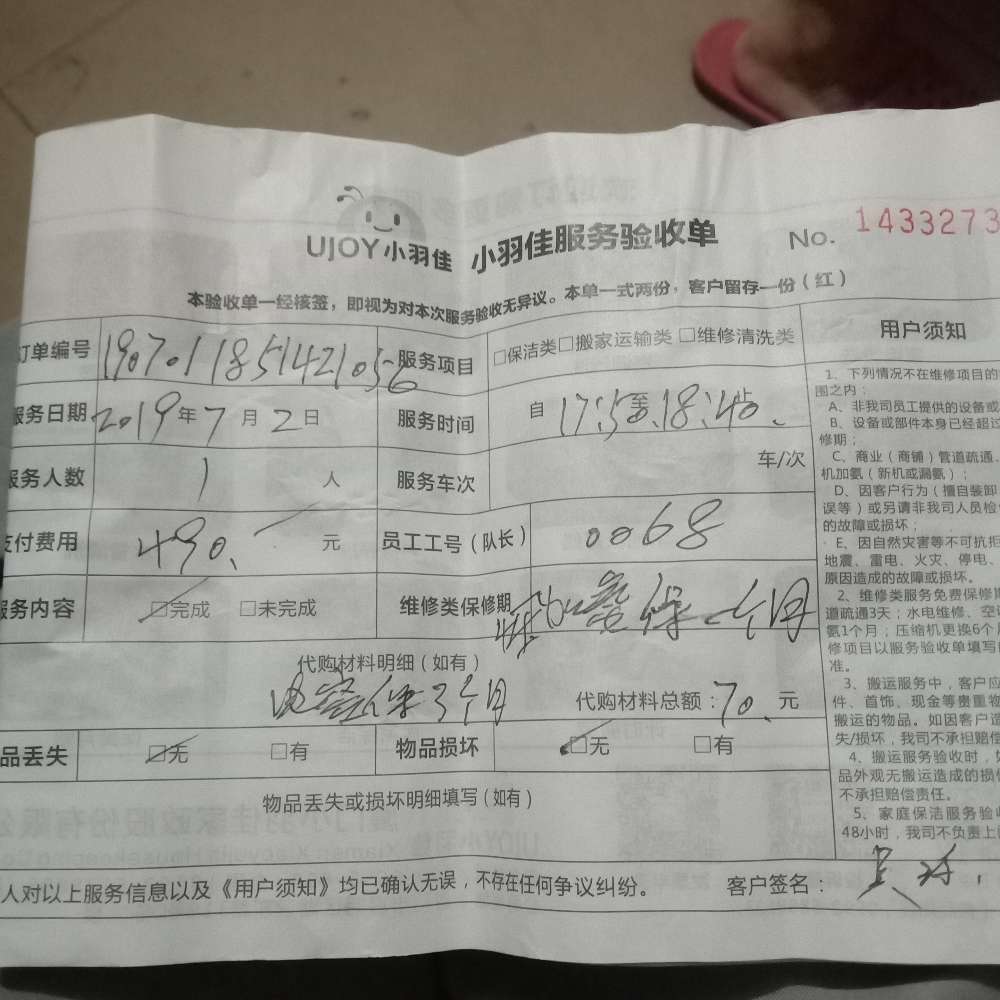 UJOY小羽佳 小羽佳服务验收单 No. 1433273
本验收单一经核签，即视为对本次服务验收无异议。本单一式两份，客户留存一份（红）
订单编号 190701185142105 服务项目 □保洁类 □搬家运输类 □维修清洗类
服务日期 2019年7月2日 服务时间 自17:50至18:40.止
服务人数 1 人 服务车次 车/次
支付费用 490. 元 员工工号（队长） 0068
服务内容 □完成 □未完成 维修类保修期 保一个月
代购材料明细（如有）
电容保3个月 代购材料总额：70. 元
品丢失 □无 □有 物品损坏 □无 □有
物品丢失或损坏明细填写（如有）
人对以上服务信息以及《用户须知》均已确认无误，不存在任何争议纠纷。 客户签名：
用户须知
1、下列情况不在维修项目的
围之内：
A、非我司员工提供的设备或
B、设备或部件本身已经超过
修期；
C、商业（商铺）管道疏通、
机加氨（新机或漏氨）；
D、因客户行为（擅自装卸
误等）或另请非我司人员检
的故障或损坏；
E、因自然灾害等不可抗拒
地震、雷电、火灾、停电、
原因造成的故障或损坏。
2、维修类服务免费保修期
道疏通3天；水电维修、空
氨1个月；压缩机更换6个月
修项目以服务验收单填写
准。
3、搬运服务中，客户应
件、首饰、现金等贵重物
搬运的物品。如因客户造
失/损坏，我司不承担赔偿
4、搬运服务验收时，如
品外观无搬运造成的损
不承担赔偿责任。
5、家庭保洁服务验收
48小时，我司不负责上